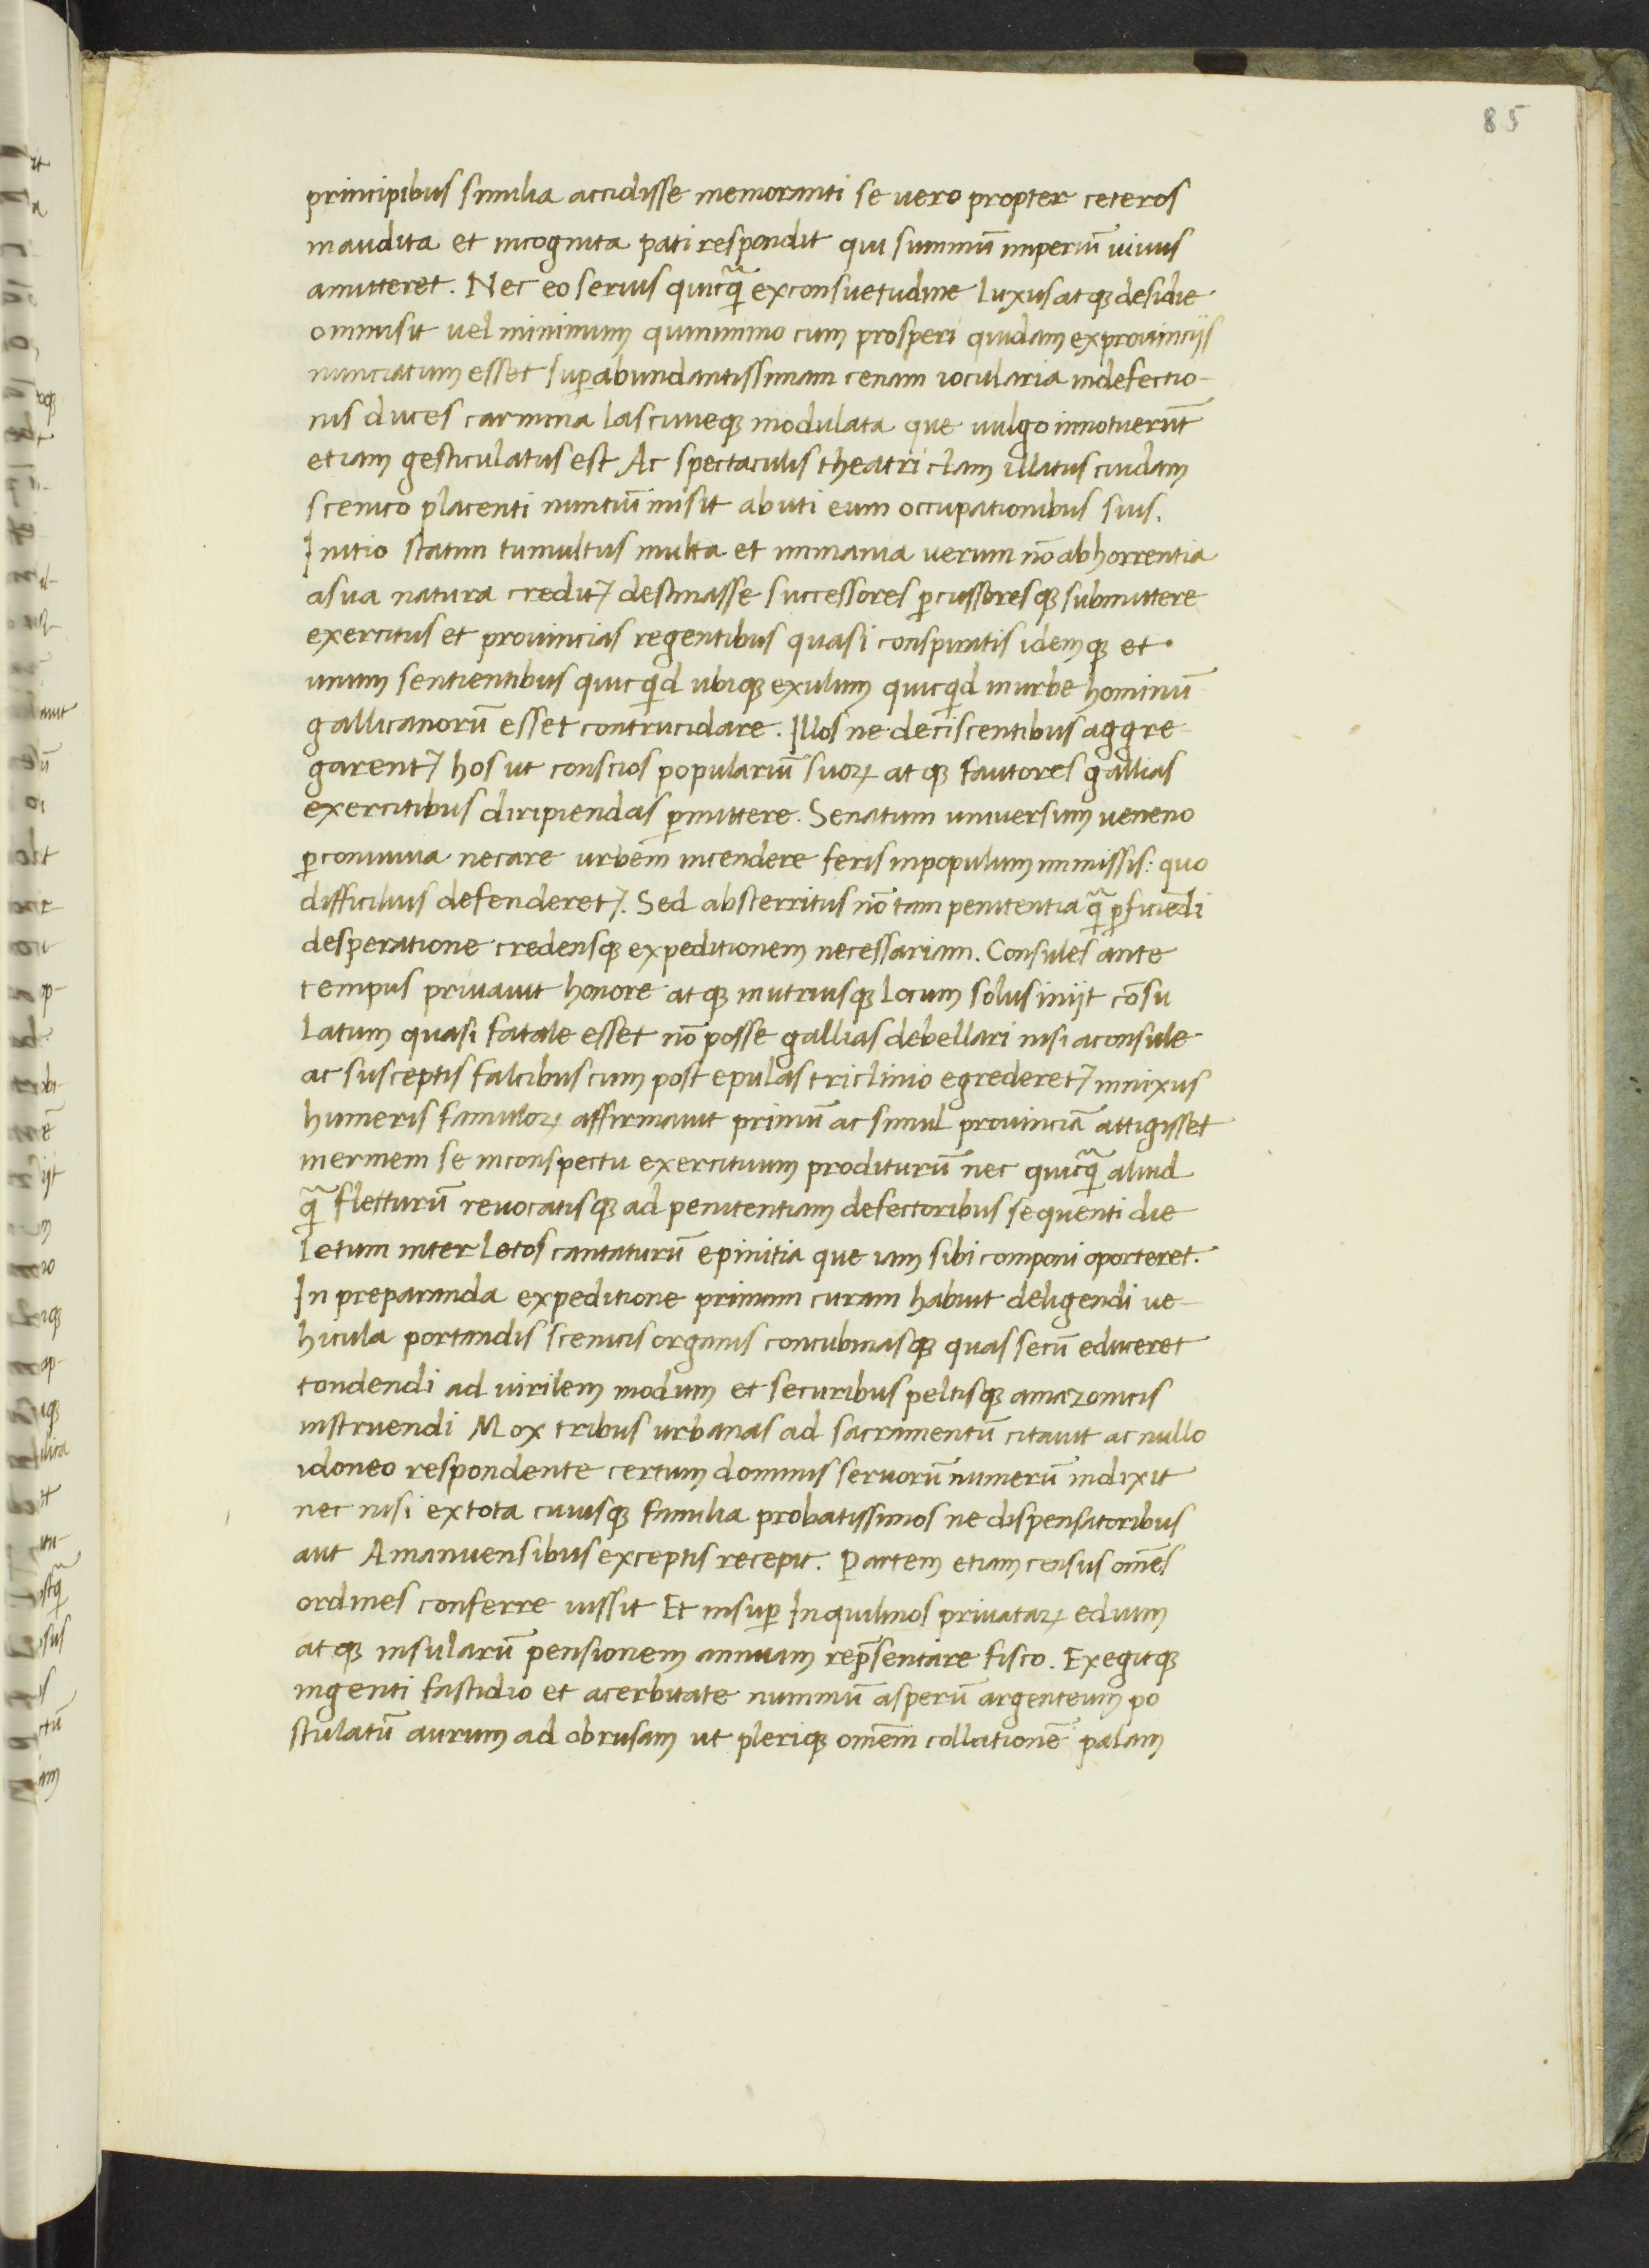 85
principibus similia accidisse memoranti se uero propter ceteros
inaudita et incognita pati respondit qui summū imperiū uiuus
amitteret. Nec eo serius quicq̄ exconsuetudine luxus atqꝫ desidie
ommisit uel minimum quinimmo cum prosperi quidam exprouincijs
nunciatum esset suꝑabundantissimam cenam iocularia indefectio-
nis duces carmina lasciueqꝫ modulata que uulgo innotuerūt
etiam gesticulatus est Ac spectaculis theatri clam illatus cuidam
scenico placenti nuntiū misit abuti eum occupationibus suis.
Initio statim tumultus multa et immania uerum nō abhorrentia
asua natura credit᷑ destinasse successores ꝑcussoresqꝫ submittere
exercitus et prouincias regentibus quasi conspiratis idemqꝫ et
unum sentientibus quicqͥd ubiqꝫ exulum quicqͥd inurbe hominū
gallicanorū esset contrucidare. Illos ne desciscentibus aggre-
garent᷑ hos ut conscios populariū suoꝝ atqꝫ fautores gallias
exercitibus diripiendas ꝑmittere. Senatum uniuersum ueneno
ꝑconuiuia necare urbem incendere feris inpopulum immissis: quo
difficilius defenderet᷑. Sed absterritus nō tam penitentia q̄ ꝑficiēdi
desperatione credensqꝫ expeditionem necessariam. Consules ante
tempus priuauit honore atqꝫ inutriusqꝫ locum solus inijt cōsu
latum quasi fatale esset nō posse gallias debellari nisi aconsule
ac susceptis falcibus cum post epulas triclinio egrederet᷑ innixus
humeris famuloꝝ affirmauit primū ac simul prouinciā attigisset
inermem se inconspectu exercituum proditurū nec quicq̄ aliud
q̄ fletturū reuocatisqꝫ ad penitentiam defectoribus sequenti die
letum inter letos cantaturū epinitia que iam sibi componi oporteret.
In preparanda expeditione primum curam habuit deligendi ue-
hicula portandis scenicis organis concubinasqꝫ quas secū educeret
tondendi ad uirilem modum et securibus peltisqꝫ amazonicis
instruendi Mox tribus urbanas ad sacramentū citauit ac nullo
idoneo respondente certum dominis seruorū numerū indixit
nec nisi extota cuiusqꝫ familia probatissimos ne dispensatoribus
aut Amanuensibus exceptis recepit. Partem etiam census om̄es
ordines conferre iussit Et insuꝑ Inquilinos priuataꝝ edium
atqꝫ insularū pensionem annuam repr̄sentare fisco. Exegitqꝫ
ingenti fastidio et acerbitate nummū asperū argenteum po
stulatū aurum ad obrusam ut pleriqꝫ om̄em collationē palam